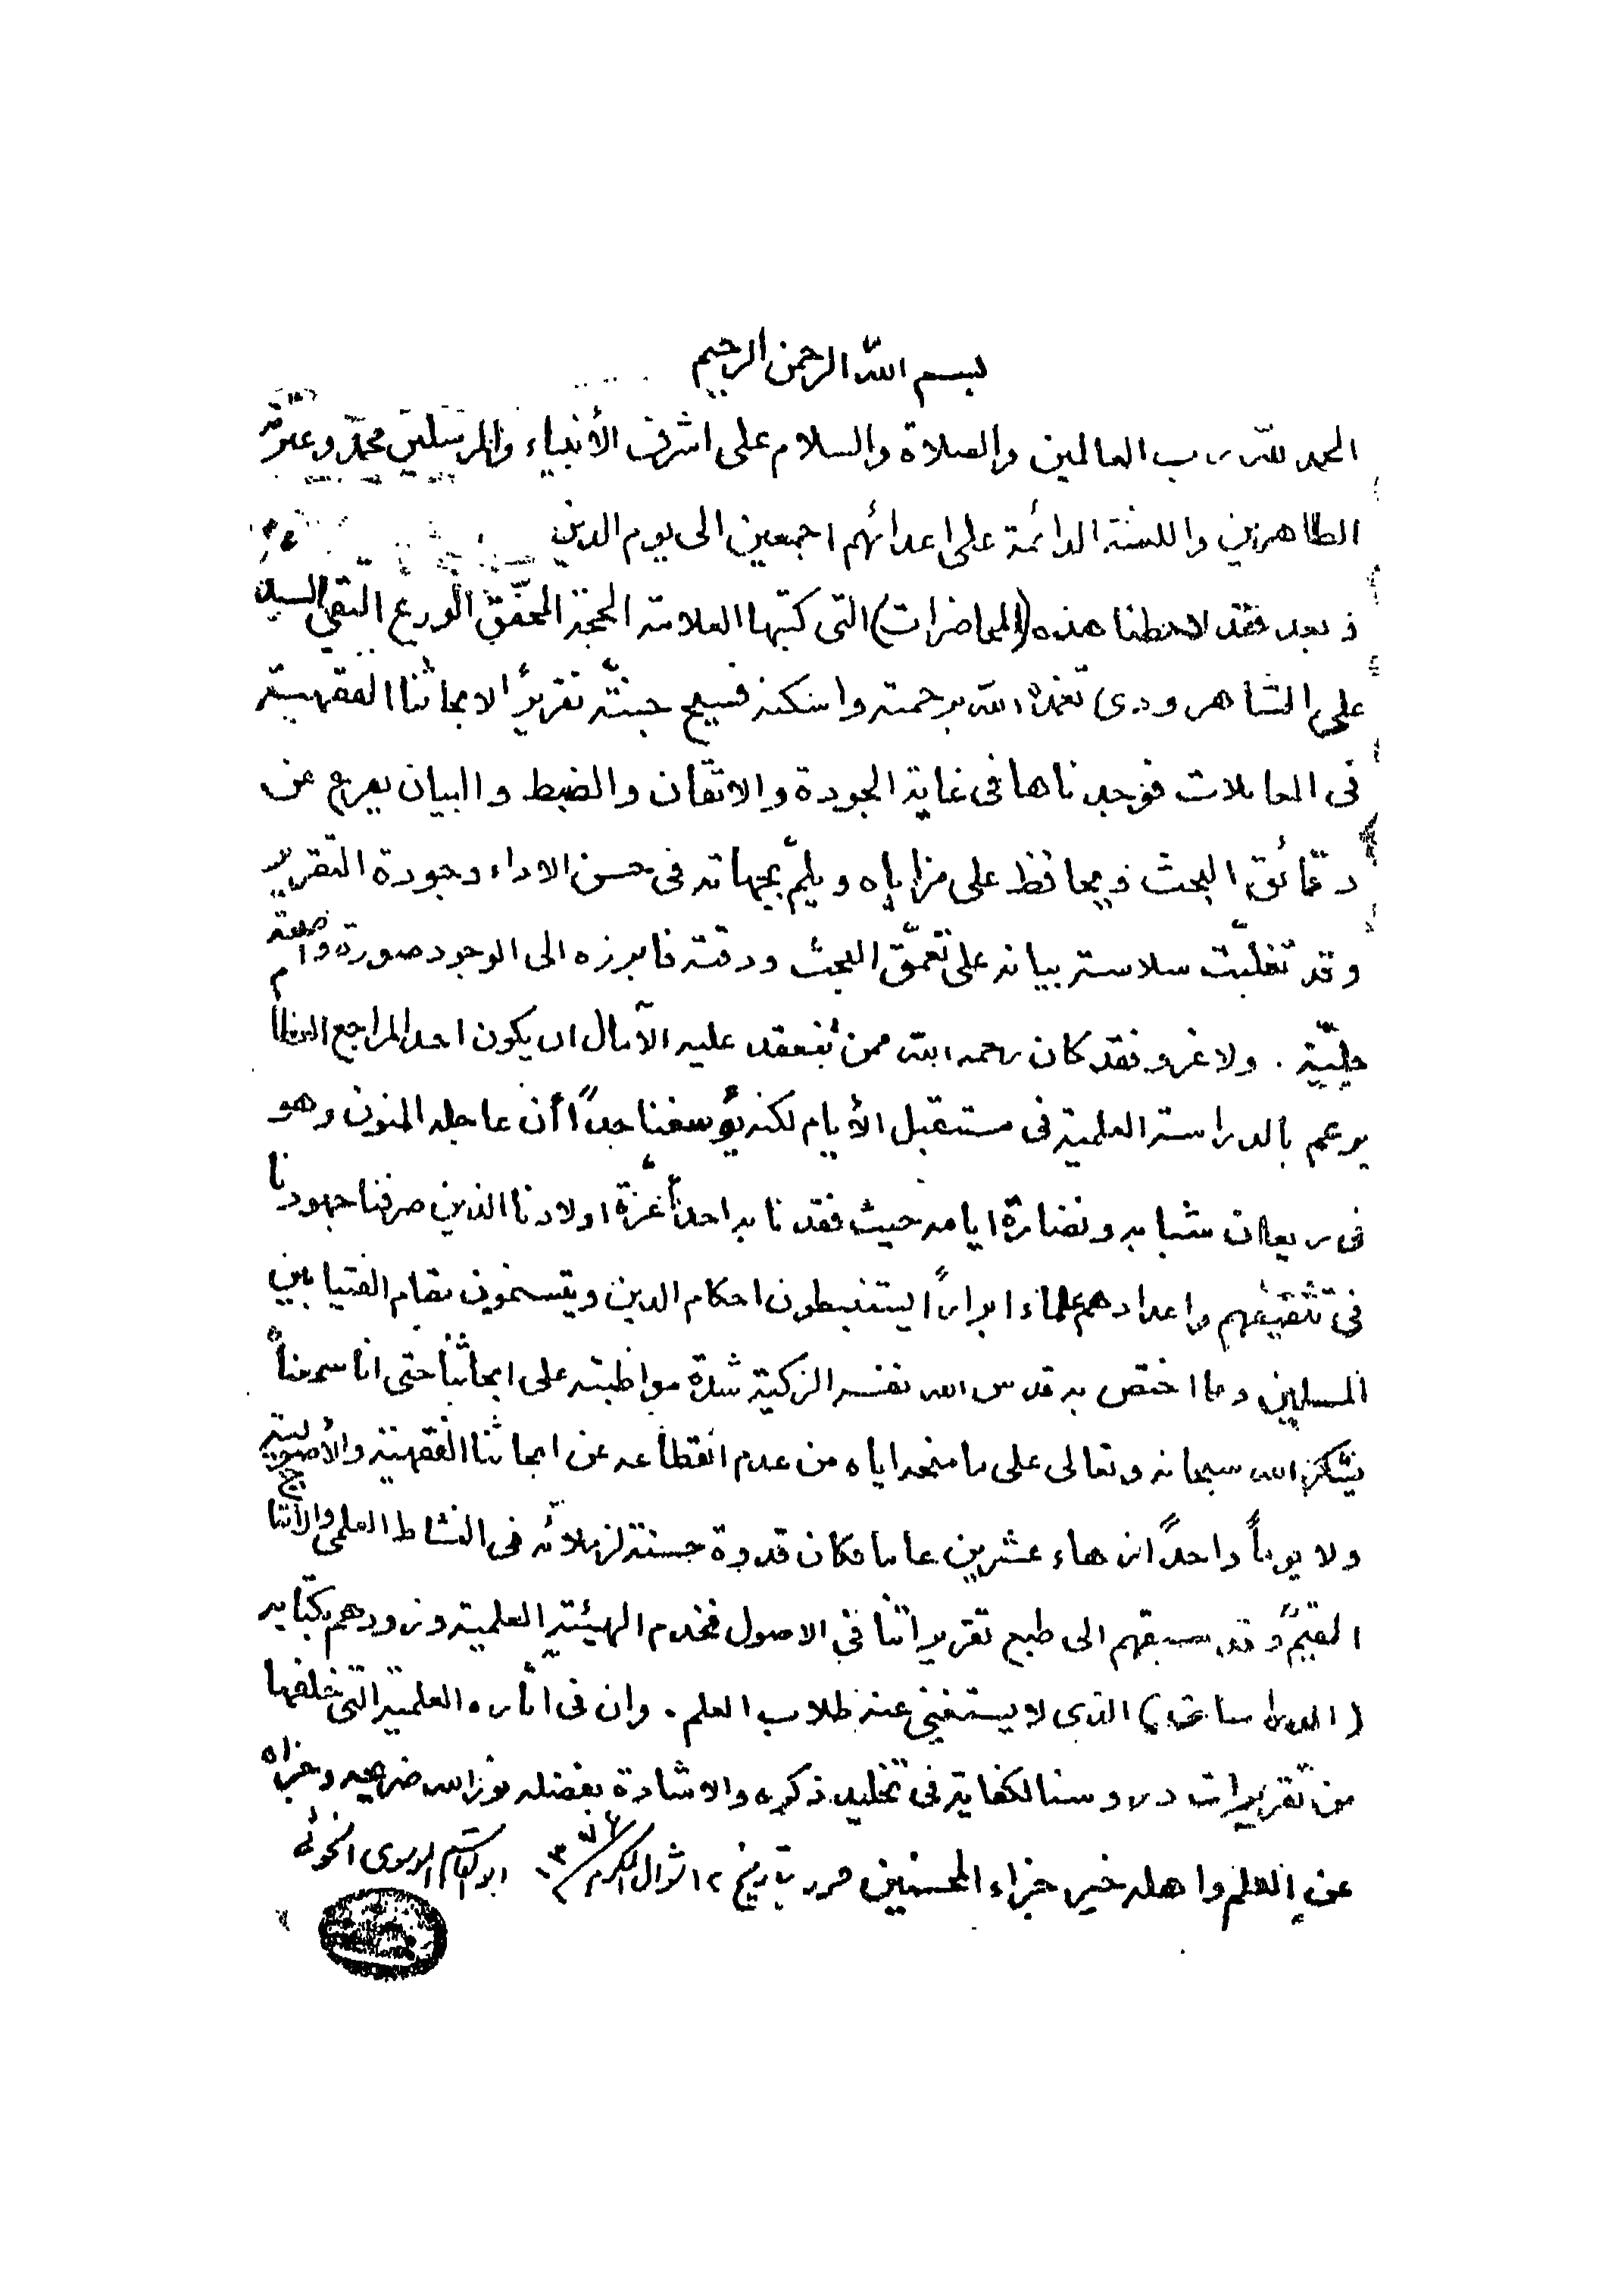 بسم الله الرحمن الرحيم
الحمد لله رب العالمين والصلاة والسلام على اشرف الأنبياء والمرسلين محمّد وعترته
الطاهرين واللعنة الدائمة على اعدائهم اجمعين الى يوم الدين
و بعد فقد لاحظنا هذه (المحاضرات) التى كتبها العلامة الحجة المحقّق الورع التقي السيد
على الشاهرودى تغمده الله برحمته واسكنه فسيح جنته تقريرًا لابحاثنا الفقهية
فى المعاملات فوجدناها فى غاية الجودة والاتقان والضبط والبيان يعرب عن
دقائق البحث و يحافظ على مزاياه و يلمّ بجهاته فى حسن الاداء وجودة التقرير
و قد تغلبت سلاسة بيانه على تعمّق البحث ودقته فابرزه الى الوجود صورة واضحة
جليّة . ولا غرو فقد كان رحمه الله ممن تنعقد عليه الآمال ان يكون احد المراجع العظام
يدعم بالدراسة العلمية فى مستقبل الأيام لكنه يؤسفنا جدًا أن عاجله المنون وهو
فى ريعان شبابه ونضارة ايامه حيث فقدنا به احد أعزة اولادنا الذين صرفنا جهودنا
فى تثقيفهم واعدادهم علماء ابرارًا يستنبطون احكام الدين ويتسنمون مقام الفتيا بين
المسلمين ومما اختص به قدس الله نفسه الزكية شدة مواظبته على ابحاثنا حتى انا سمعناه
يشكر الله سبحانه وتعالى على ما منحه اياه من عدم انقطاعه عن ابحاثنا الفقهية والأصولية
ولا يومًا واحدًا زهاء عشرين عاما فكان قدوة حسنة لزملائه فى النشاط العلمى والانتاج
القيّم وقد سبقهم الى طبع تقريراتنا في الاصول فخدم الهيئة العلمية وزودهم بكتابه
(الدراسات) الذى لا يستغني عنه طلاب العلم . وان فى اثاره العلمية التى خلفها
من تقريرات دروسنا لكفاية فى تخليد ذكره والاشادة بفضله نور الله ضريحه وجزاه
عن العلم واهله خير جزاء المحسنين حرر بتاريخ ١٢ شوال المكرم ١٣٧٦ ابو القاسم الموسوى الخوئى